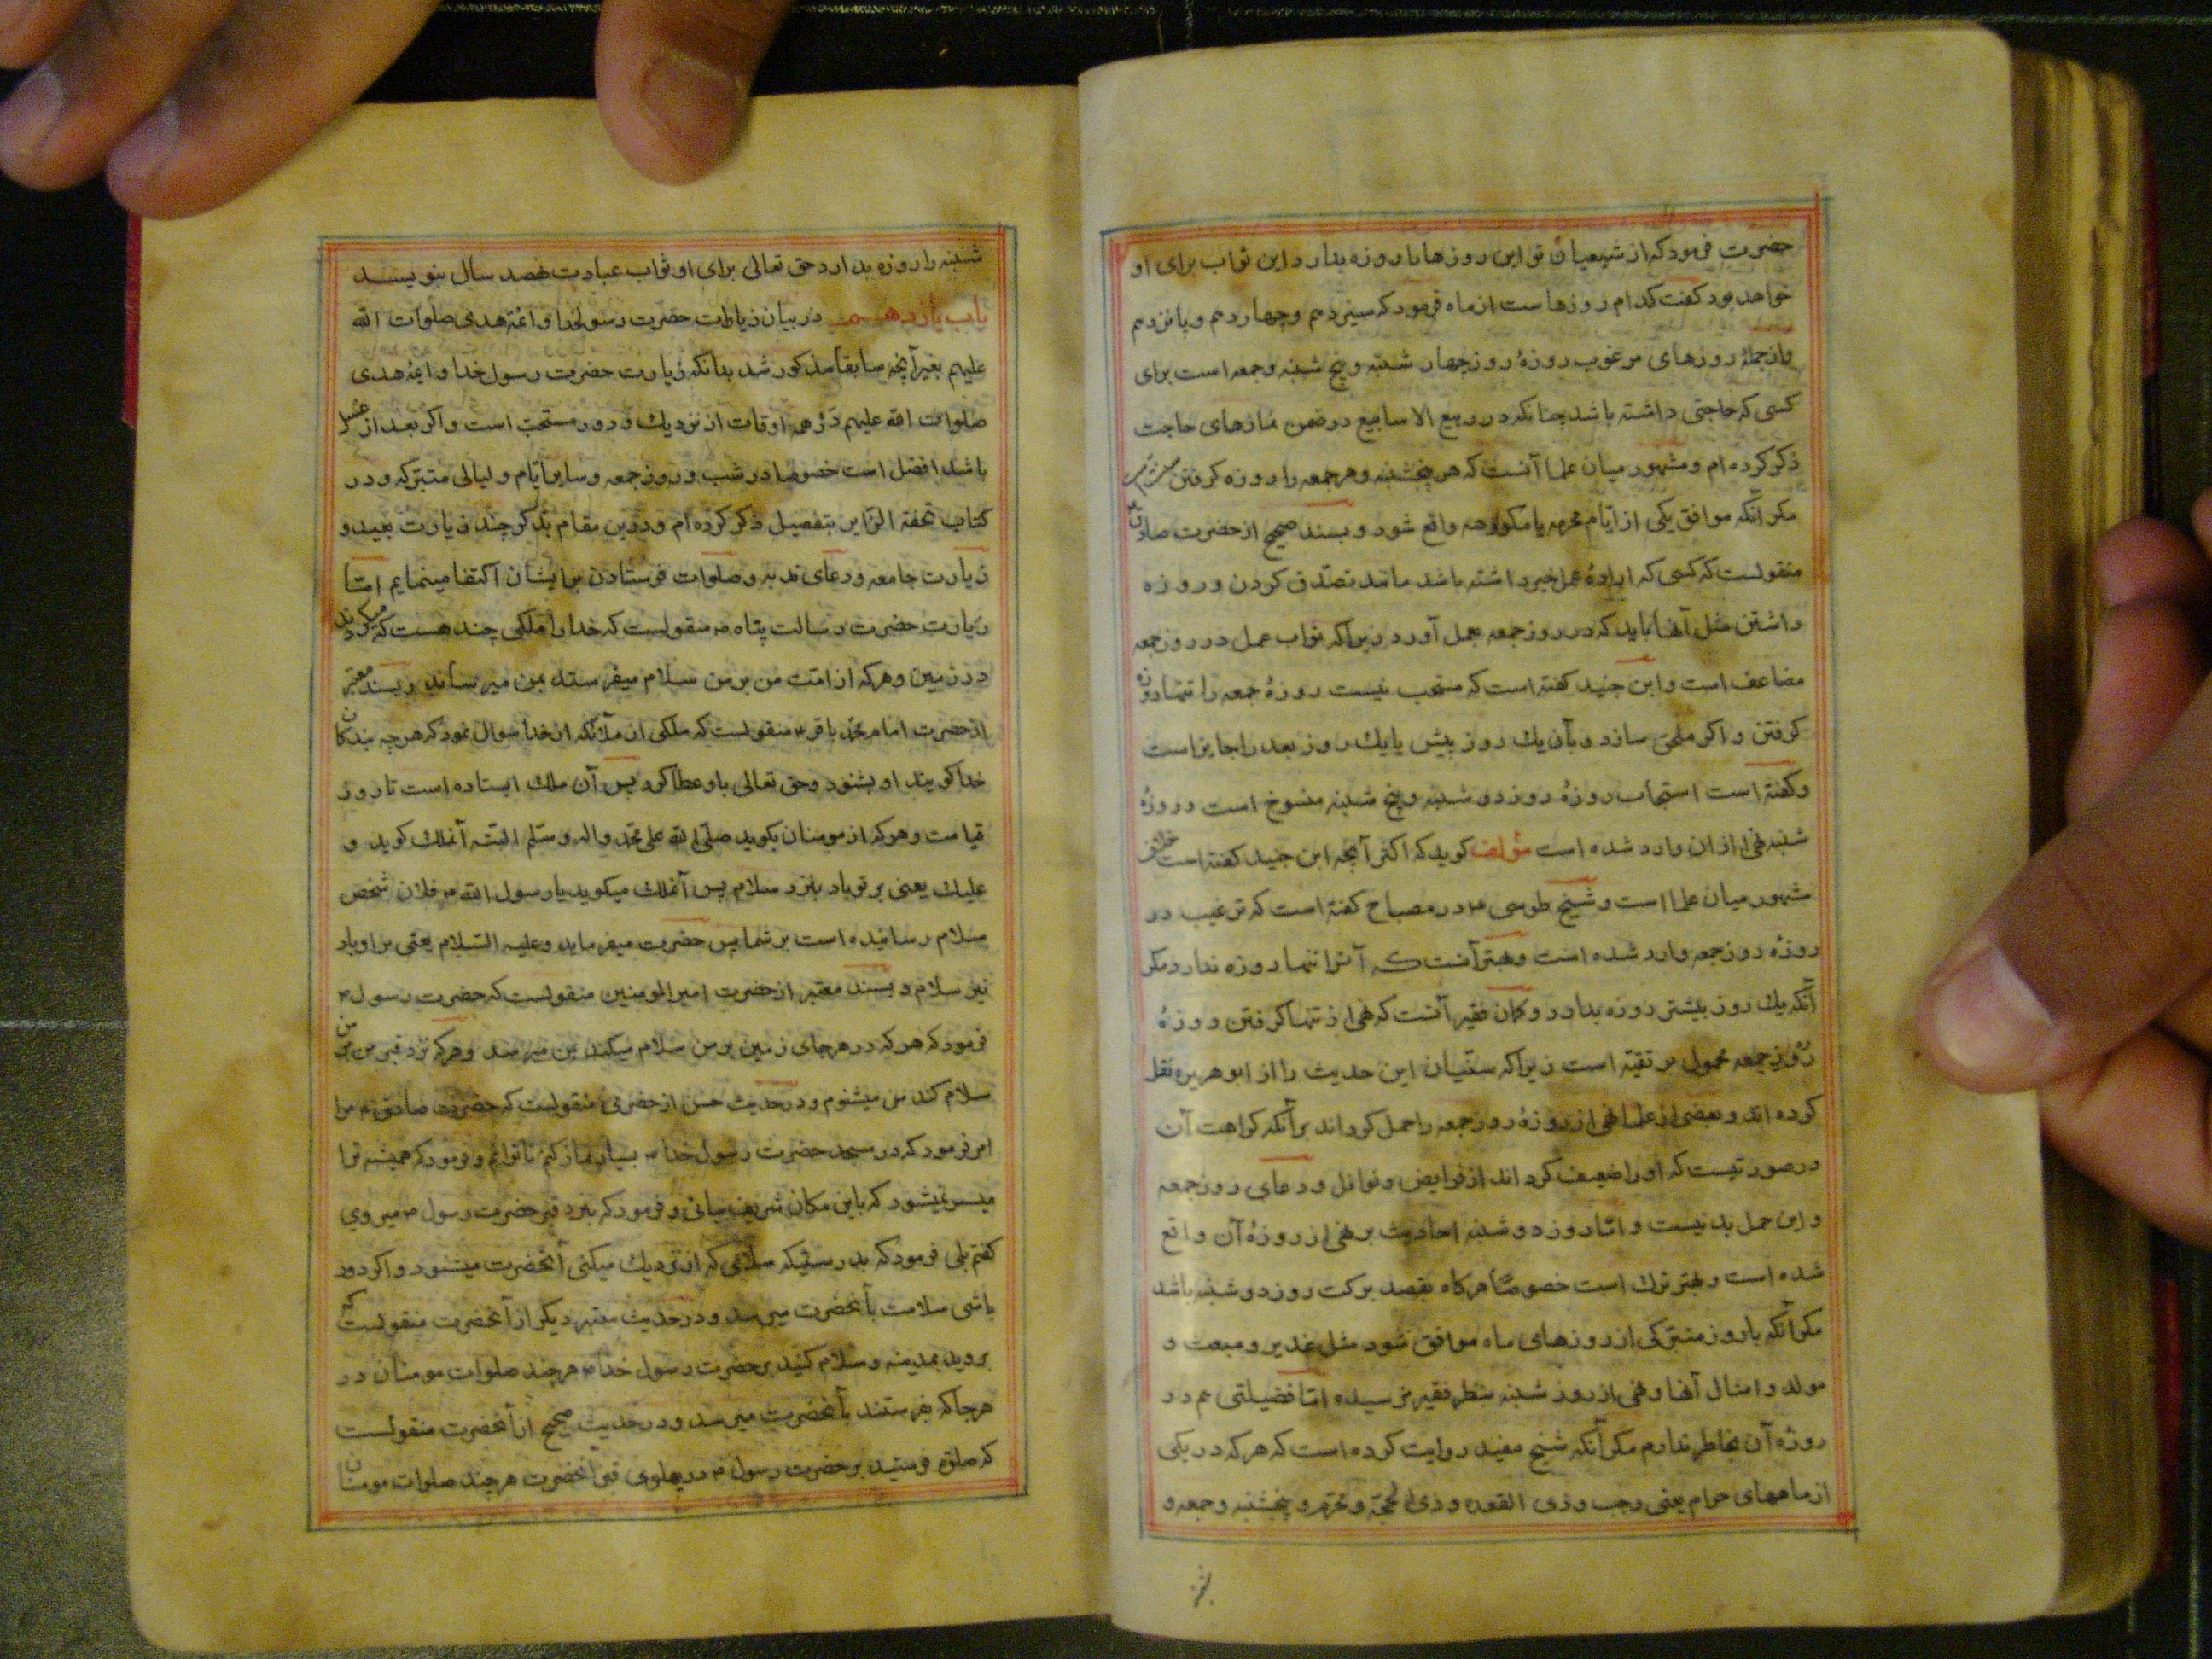 حضرت فرمود که از شیعیان تو این روزها را روزه بدارد این ثواب برای او
خواهد بود کفت کدام روزهاست از ماه فرمود که سیزدهم و چهاردهم و پانزدهم
و از جملهٔ روزهای مرغوب روزهٔ روز چهار شنبه و پنج شنبه و جمعه است برای
کسی که حاجتی داشته باشد چنانکه در ربیع الاسابیع در ضمن نمازهای حاجت
ذکر کرده ام و مشهور میان علما آنست که هر پنجشنبه و هر جمعه را روزه کرفتن
مکر آنکه موافق یکی از ایام محرمه یا مکروهه واقع شود و بسند صحیح از حضرت صادق
منقولست که کسی که ارادهٔ عمل خیر داشته باشد مانند تصدّق کردن و روزه
داشتن مثل آنها باید که در روز جمعه بعمل آورد زیرا که ثواب عمل در روز جمعه
مضاعف است و ابن جنید کفته است که مستحب نیست روزهٔ جمعه را تنها روزه
کرفتن و اکر ملحق سازد بآن یك روز پیش یا یك روز بعد را جایز است
و کفته است استحباب روزهٔ روز دو شنبه و پنج شنبه منسوخ است و روزهٔ
شنبه نهی از آن وارد شده است مؤلف کوید که اکثر آنچه ابن جنید کفته است خلاف
مشهور میان علما است و شیخ طوسی ره در مصباح کفته است که ترغیب در
روزهٔ روز جمعه وارد شده است و بهتر آنست که آنرا تنها روزه ندارد مکر
آنکه یك روز پیشتر روزه بدارد و کمان فقیر آنست که نهی از تنها کرفتن روزهٔ
روز جمعه محمول بر تقیّه است زیرا که سنّیان این حدیث را از ابو هریره نقل
کرده اند و بعضی از علما نهی از روزهٔ روز جمعه را حمل کرده‌اند بر آنکه کراهت آن
در صورتیست که او را ضعیف کرداند از فرایض و نوافل و دعای روز جمعه
و این حمل بد نیست و امّا روز دو شنبه احادیث بر نهی از روزهٔ آن واقع
شده است و بهتر ترك است خصوصًا هرکاه بقصد برکت روز دو شنبه باشد
مکر آنکه با روز متبرّکی از روزهای ماه موافق شود مثل غدیر و مبعث و
مولد و امثال آنها و نهی از روز شنبه بنظر فقیر نرسیده امّا فضیلتی هم در
روزهٔ آن بخاطر ندارم مکر آنکه شیخ مفید روایت کرده است که هر که در یکی
از ماههای حرام یعنی رجب و ذی القعده و ذی الحجّه و محرّم پنجشنبه و جمعه و
شنبه را روزه بدارد حق تعالی برای او ثواب عبادت نهصد سال بنویسد
باب یازدهم در بیان زیارات حضرت رسول خدا و ائمّه هدی صلوات الله
علیهم بغیر آنچه سابقا مذکور شد بدانکه زیارت حضرت رسول خدا و ائمّه هدی
صلوات الله علیهم در همه اوقات از نزدیك و دور مستحبّ است و اکر بعد از غسل
باشد افضل است خصوصا در شب و روز جمعه و سایر ایّام و لیالی متبرّکه و در
کتاب تحفة الزّایر بتفصیل ذکر کرده ام و در این مقام بذکر چند زیارت بعید و
زیارت جامعه و دعای ندبه و صلوات فرستادن بر ایشان اکتفا مینمایم امّا
زیارت حضرت رسالت پناه ص منقولست که خدا را ملکی چند هست که میکردند
در زمین و هرکه از امّت من بر من سلام میفرستد بمن میرسانند و بسند معتبر
از حضرت امام محمّد باقر ع منقولست که ملکی از ملائکه از خدا سوال نمود که هرچه بندکان
خدا کویند او بشنود و حق تعالی باو عطا کرد پس آن ملك ایستاده است تا روز
قیامت و هرکه از مومنان بکوید صلّی الله علی محمّد و اله و سلّم البتّه آنملك کوید و
علیك یعنی بر تو باد نیز سلام پس آنملك میکوید یا رسول الله ص فلان شخص
سلام رسانیده است بر شما پس حضرت میفرماید و علیه السّلام یعنی بر او باد
نیز سلام و بسند معتبر از حضرت امیر المومنین منقولست که حضرت رسول ص
فرمود که هرکه در هر جای زمین بر من سلام میکند بمن میرسد و هرکه نزد قبر من بر من
سلام کند من میشنوم و در حدیث حسن از حضرمی منقولست که حضرت صادق ع مرا
امر فرمود که در مسجد حضرت رسول خدا ص بسیار نماز کنم تا توانم و فرمود که همیشه ترا
میسر نمیشود که باین مکان شریف بیائی و فرمود که بنزد قبر حضرت رسول ص میروی
کفتم بلی فرمود که بدرستیکه سلامی که از نزدیك میکنی آنحضرت میشنود و اکر دور
باشی سلامت بآنحضرت میرسد و در حدیث معتبر دیکر از آنحضرت منقولست که
بروید بمدینه و سلام کنید بر حضرت رسول خدا ص هرچند صلوات مومنان در
هرجا که بفرستند بآنحضرت میرسد و در حدیث صحیح از آنحضرت منقولست
که صلوة فرستید بر حضرت رسول ص در پهلوی قبر آنحضرت هرچند صلوات مومنان